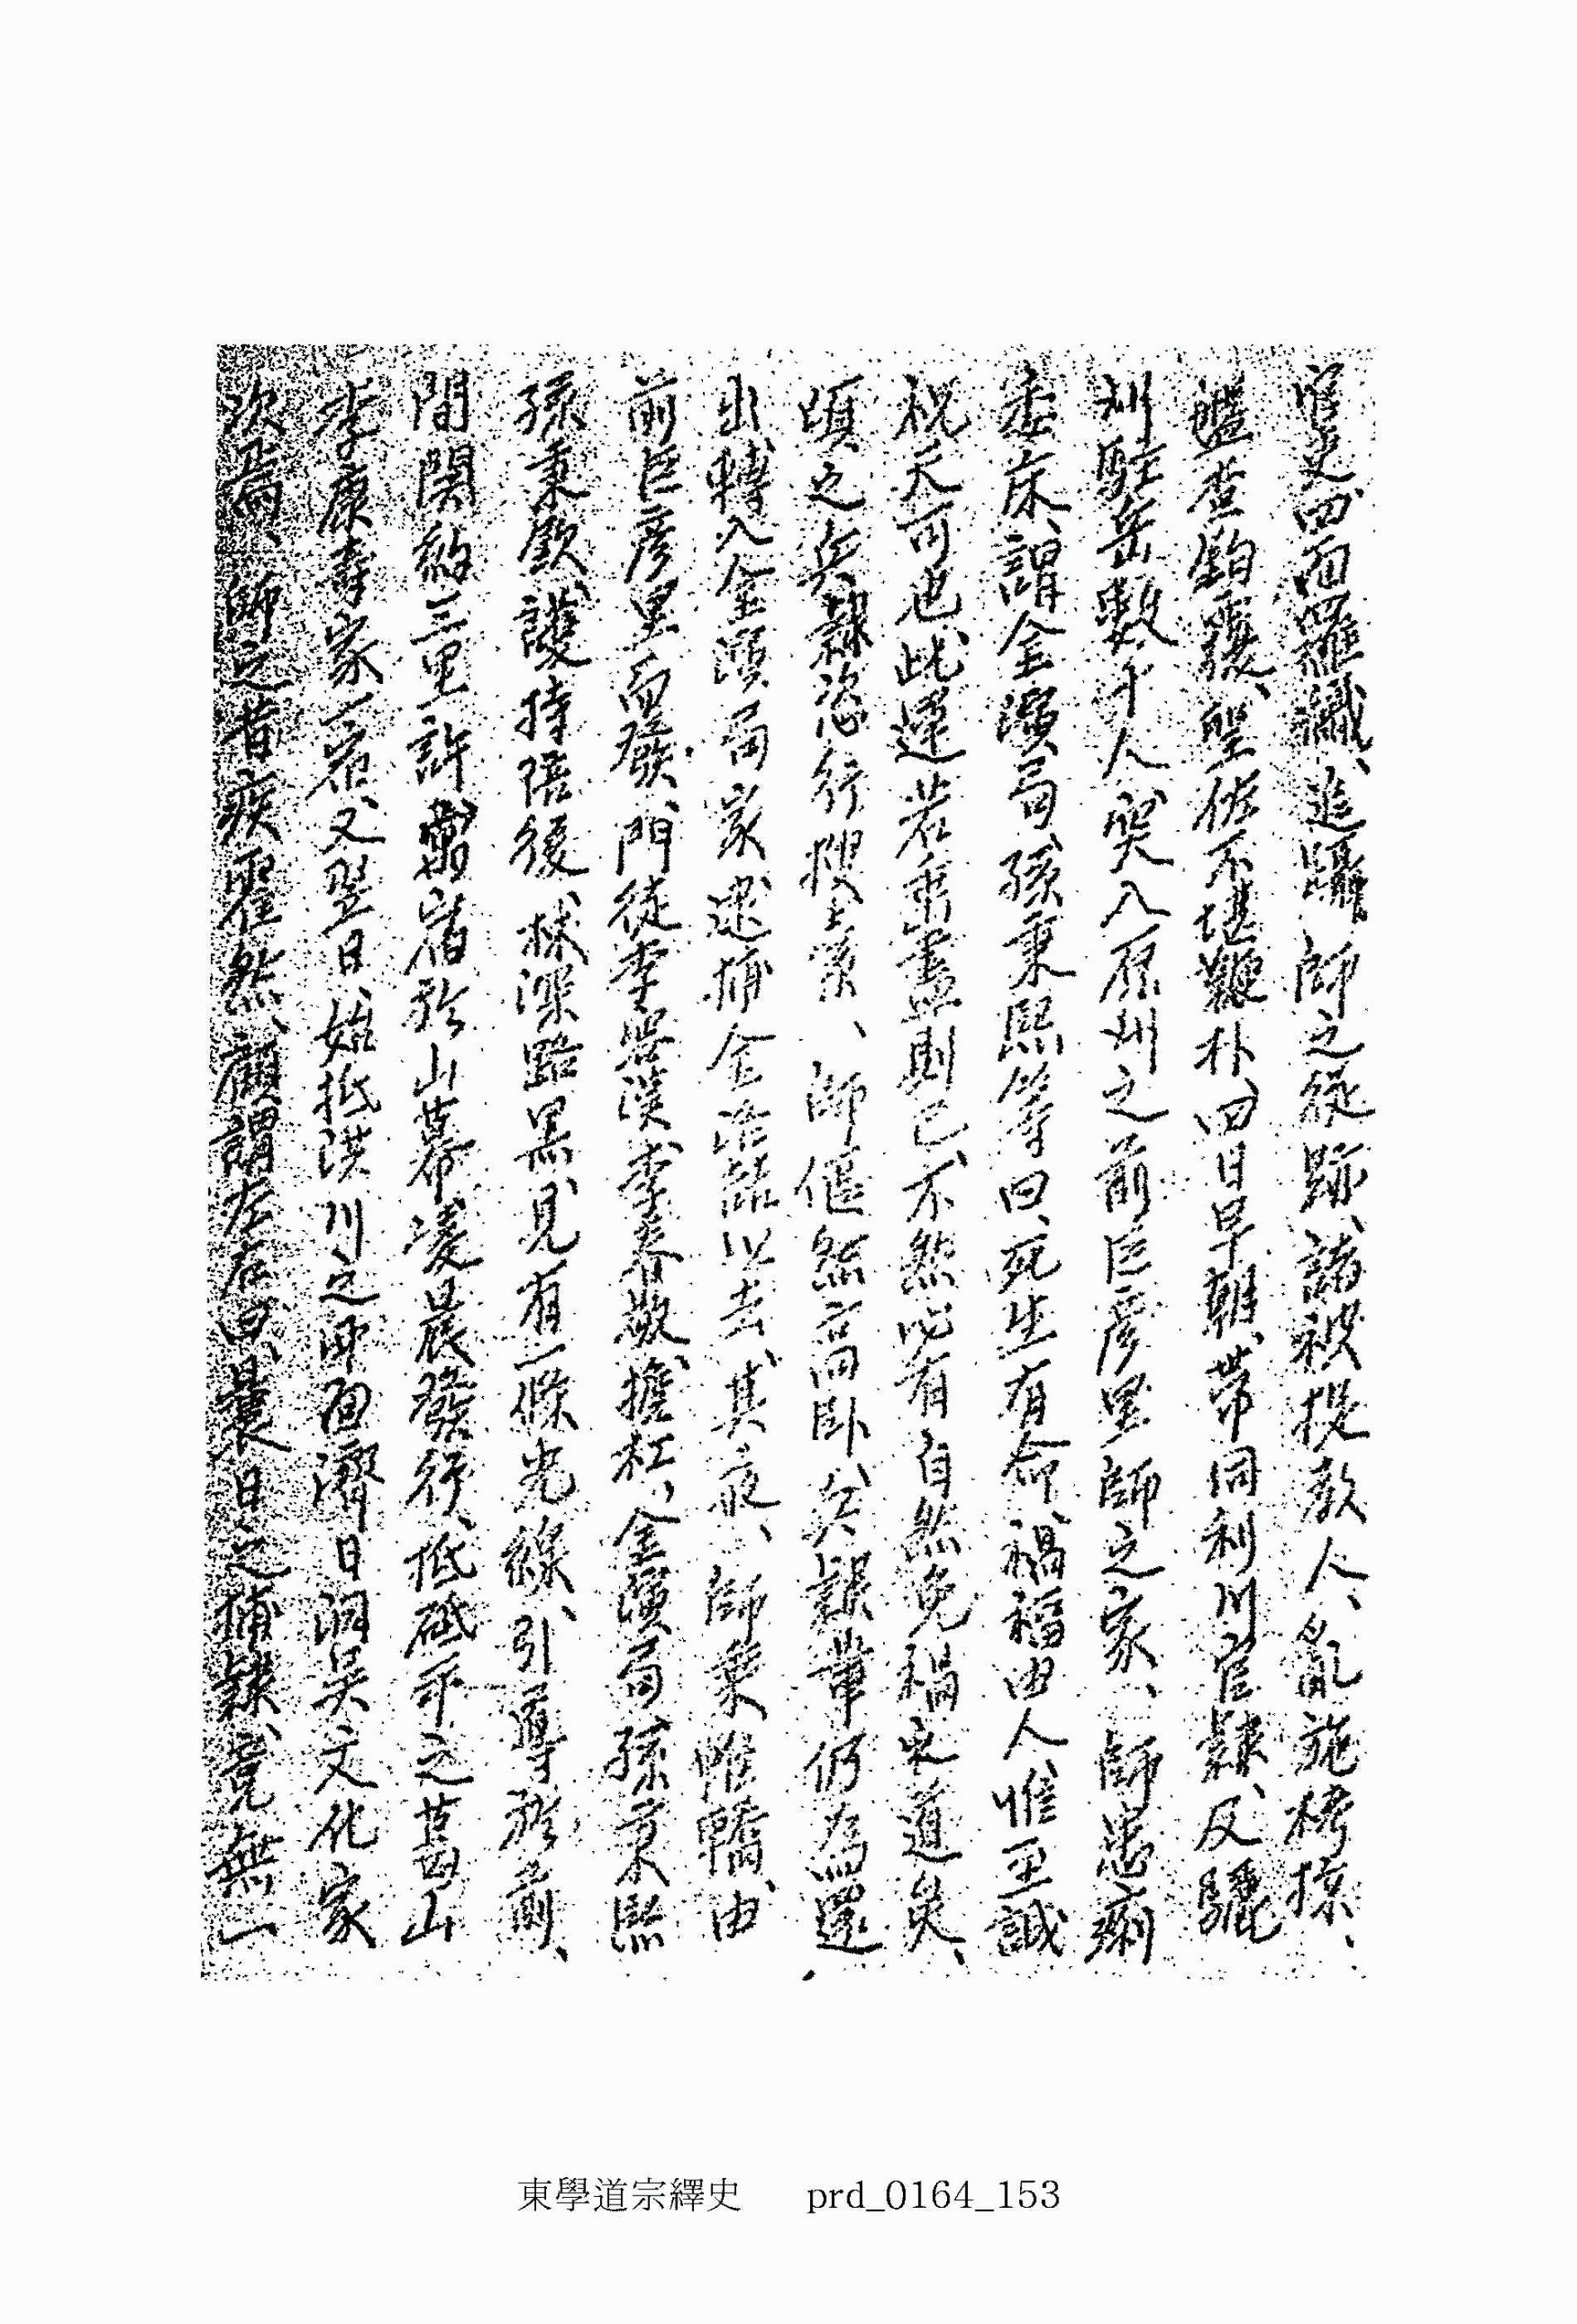 官吏曰而羅織、追躡師之從跡、諸被捉敎人、亂施栲掠、
盤查鉤覈、聖佐不堪鞭朴、四日早朝、帶同利川官隸、及驪
州駐兵數十人、突入原州之前巨彦里師之家、師患痢
委床、謂金演局、孫秉熙等曰、死生有命、禍福由人、惟至誠
祝天可也、此運若衰盡則已、不然必有自然免禍之道矣、
頃之兵隸恣行搜索、師偃然高臥、兵誤輩仍為還
出、轉入金演局家、逮捕金洛喆以去、其夜、師乘帷轎、由
前巨彦里而發、門徒李容漢、李春敬、擔杠、金演局、孫秉熙
孫秉欽、護持陪後、林深路黑、見有一條光線、引導於前、
間關約三里許、寓宿於山幕、凌晨發行、抵砥平之葛山
李康壽家一宿、又翌日、始抵洪川之西面濟日洞吳文化家
次焉、師之昔疾霍然、顧謂左右曰、曩日之捕隸、竟無一
東學道宗繹史 prd_0164_153